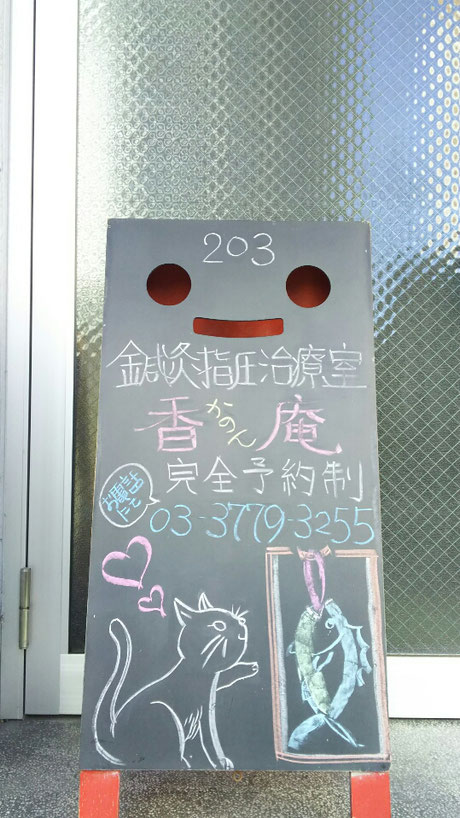 203
鍼灸指圧治療室
香かのん庵
完全予約制
お電話にて
03-3779-3255